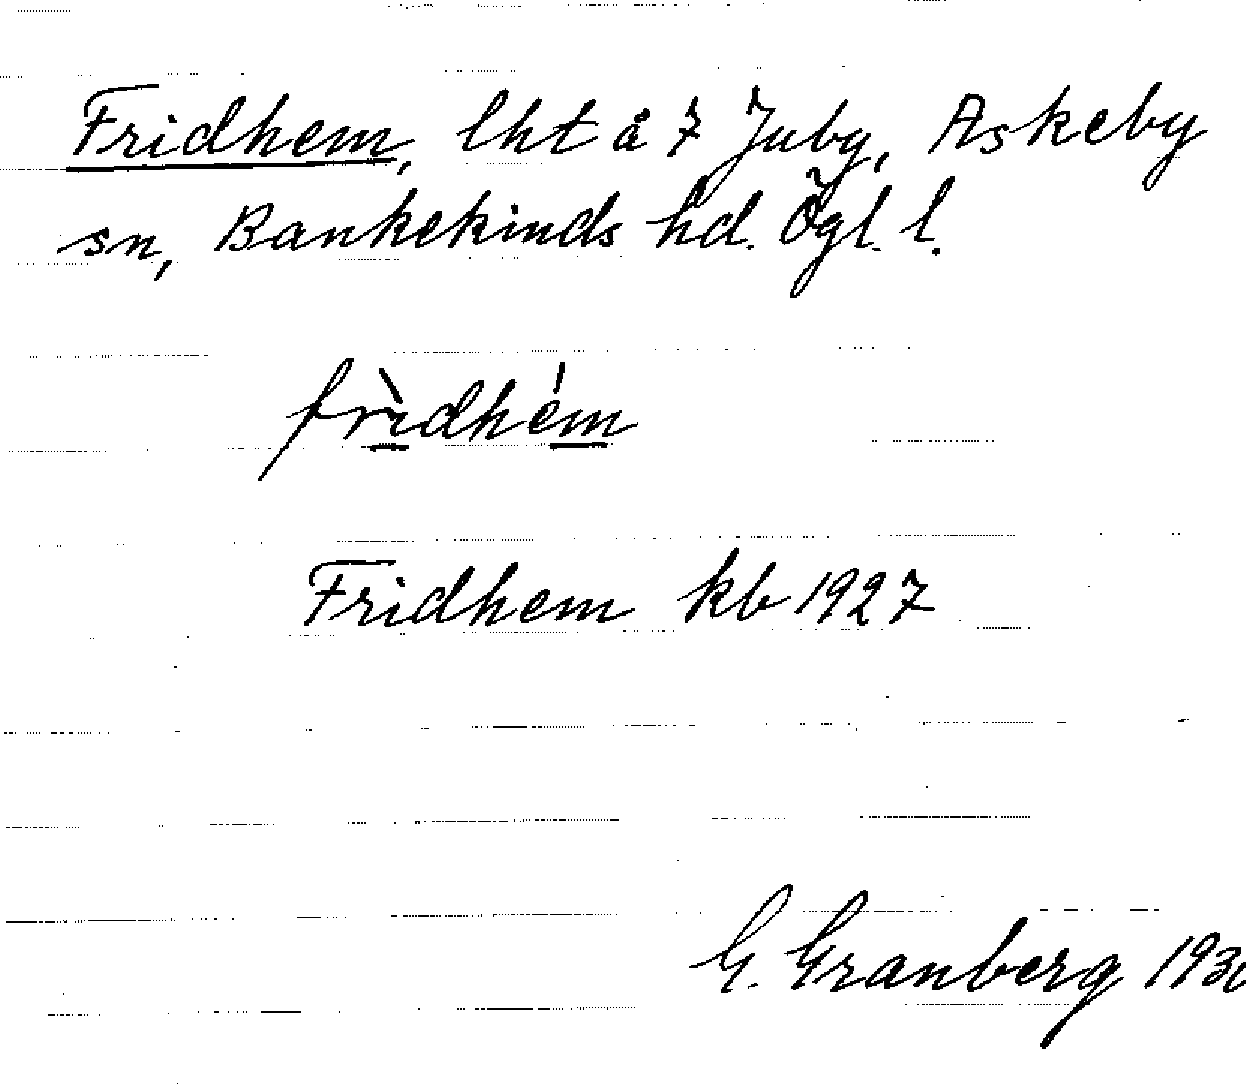 Fridhem, lht å 7 Juby, Askeby
sn, Bankekinds hd. Ögl. l.
frìdhém
Fridhem kb 1927
G. Granberg 1930